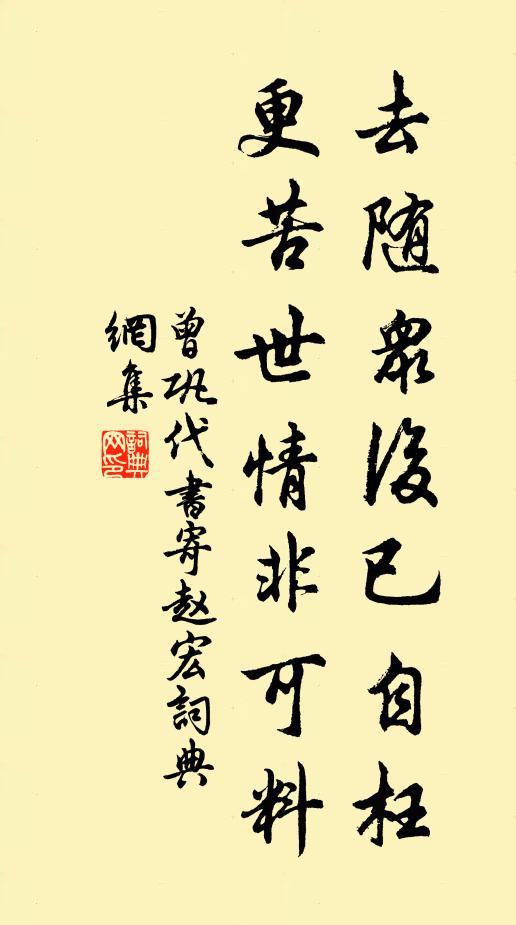 去随衆後已自枉
更苦世情非可料
曾巩代書寄赵宏詞典
網集
詞典网印